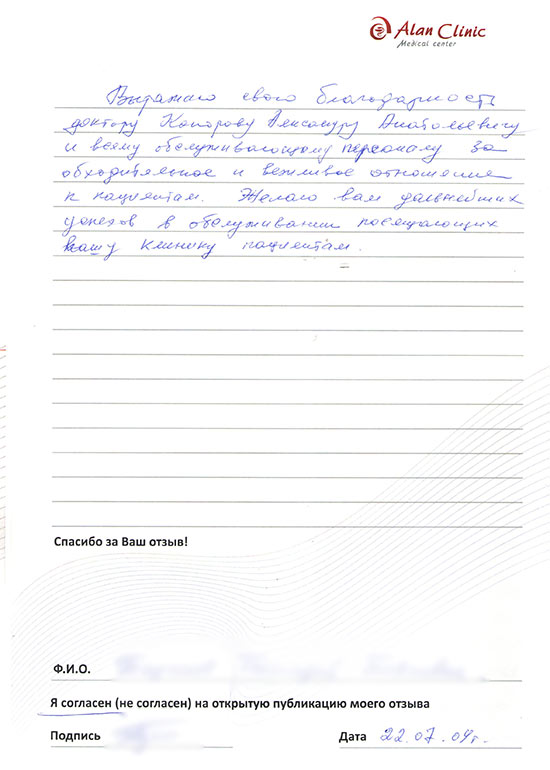 Alan Clinic
Medical center
Выражаю свою благодарность
доктору Копорову Александру Анатольевичу
и всему обслуживающему персоналу за
обходительное и вежливое отношение
к пациентам. Желаю вам дальнейших
успехов в обслуживании посещающих
вашу клинику пациентам.
Спасибо за Ваш отзыв!
Ф.И.О.
Я согласен (не согласен) на открытую публикацию моего отзыва
Подпись Дата 22.07.09г.